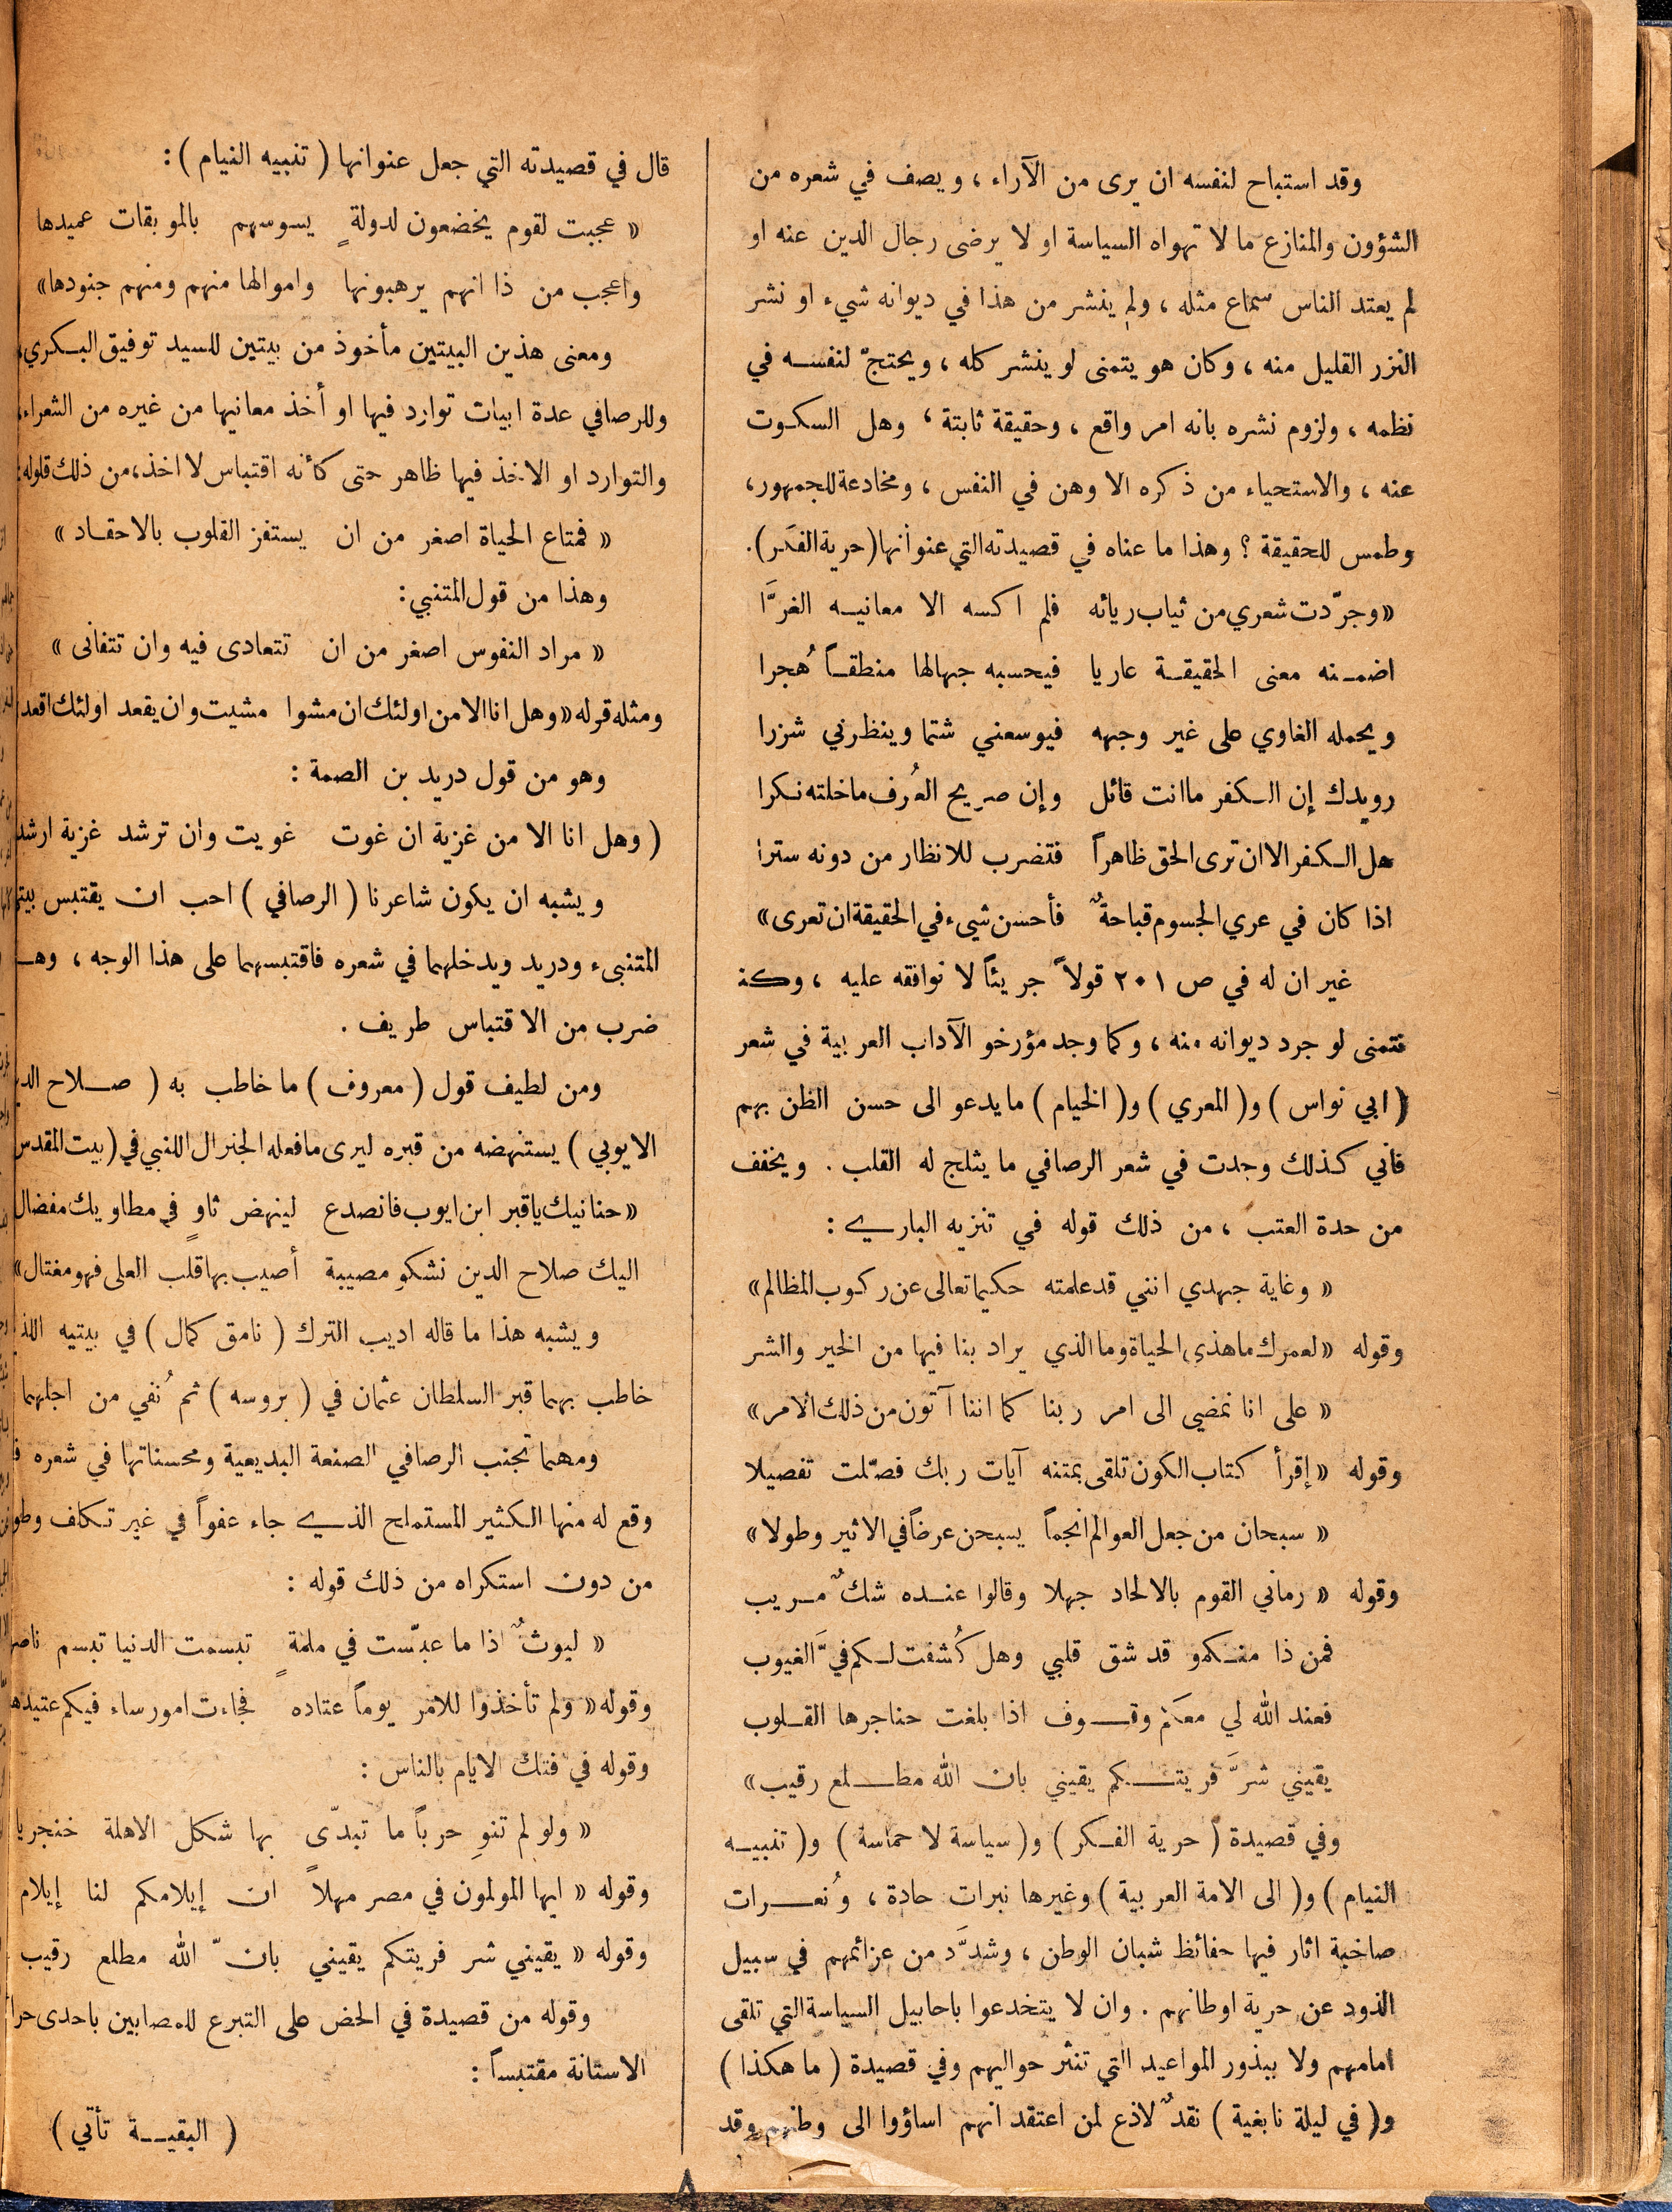 وقد استباح لنفسه ان يرى من الآراء ، ويصف في شعره من
الشؤون والمنازع ما لا تهواه السياسة او لا يرضى رجال الدين عنه او
لم يعتد الناس سماع مثله ، ولم ينشر من هذا في ديوانه شيء او نشر
النزر القليل منه ، وكان هو يتمنى لو ينشر كله ، ويحتجّ لنفسه في
نظمه ، ولزوم نشره بانه امر واقع ، وحقيقة ثابتة ، وهل السكوت
عنه ، والاستحياء من ذكره الا وهن في النفس ، ومخادعة للجمهور،
وطمس للحقيقة ؟ وهذا ما عناه في قصيدته التي عنوانها (حرية الفكر).
«وجرّدت شعري من ثياب ريائه فلم اكسه الا معانيه الغرَّا
اضمنه معنى الحقيقة عاريا فيحسبه جهالها منطقاً هُجرا
ويحمله الغاوي على غير وجهه فيوسعني شتما وينظرني شزرا
رويدك إن الكفر ما انت قائل وإن صريح العُرف ما خلته نكرا
هل الكفر الا ان ترى الحق ظاهراً فتضرب للانظار من دونه سترا
اذا كان في عري الجسوم قباحةٌ فأحسن شيء في الحقيقة ان تعرى»
غير ان له في ص ٢٠١ قولاً جريئاً لا نوافقه عليه ، وكنـ
نتمنى لو جرد ديوانه منه ، وكما وجد مؤرخو الآداب العربية في شعر
(ابي نواس) و(المعري) و(الخيام) ما يدعو الى حسن الظن بهم
فاني كذلك وجدت في شعر الرصافي ما يثلج له القلب . ويخفف
من حدة العتب ، من ذلك قوله في تنزيه الباري :
« وغاية جهدي انني قد علمته حكيما تعالى عن ركوب المظالم»
وقوله «لعمرك ما هذي الحياة وما الذي يراد بنا فيها من الخير والشر
« على انا نمضي الى امر ربنا كما اننا آتون من ذلك الامر»
وقوله «إقرأ كتاب الكون تلقى بمتنه آيات ربك فصّلت تفصيلا
« سبحان من جعل العوالم انجماً يسبحن عرضاً في الاثير وطولا»
وقوله « رماني القوم بالالحاد جهلا وقالوا عنده شكٌ مريب
فمن ذا منكمو قد شق قلبي وهل كُشفت لكم فيَّ الغيوب
فعند الله لي معكم وقوف اذا بلغت حناجرها القلوب
يقيني شرَّ فريتكم يقيني بان الله مطلع رقيب»
وفي قصيدة (حرية الفكر) و(سياسة لا حماسة) و(تنبيه
النيام) و(الى الامة العربية) وغيرها نبرات حادة ، ونُعرات
صاخبة اثار فيها حفائظ شبان الوطن ، وشدَّد من عزائمهم في سبيل
الذود عن حرية اوطانهم . وان لا يتخدعوا باحابيل السياسة التي تلقى
امامهم ولا ببذور المواعيد التي تنثر حواليهم وفي قصيدة (ما هكذا)
و(في ليلة نابغية) نقدٌ لاذع لمن اعتقد انهم اساؤوا الى وطنهم وقد
قال في قصيدته التي جعل عنوانها (تنبيه النيام) :
« عجبت لقوم يخضعون لدولةٍ يسوسهم بالموبقات عميدها
واعجب من ذا انهم يرهبونها واموالها منهم ومنهم جنودها»
ومعنى هذين البيتين مأخوذ من بيتين للسيد توفيق البكري،
وللرصافي عدة ابيات توارد فيها او أخذ معانيها من غيره من الشعراء،
والتوارد او الاخذ فيها ظاهر حتى كأنه اقتباس لا اخذ، من ذلك قلوله:
« فمتاع الحياة اصغر من ان يستفز القلوب بالاحقاد »
وهذا من قول المتنبي:
« مراد النفوس اصغر من ان تتعادى فيه وان تتفانى »
ومثله قوله «وهل انا الا من اولئك ان مشوا مشيت وان يقعد اولئك اقعد
وهو من قول دريد بن الصمة :
( وهل انا الا من غزية ان غوت غويت وان ترشد غزية ارشد
ويشبه ان يكون شاعرنا (الرصافي) احب ان يقتبس بيتي
المتنبىء ودريد ويدخلهما في شعره فاقتبسهما على هذا الوجه ، وهـ
ضرب من الاقتباس طريف .
ومن لطيف قول (معروف) ما خاطب به (صلاح الد
الايوبي) يستنهضه من قبره ليرى ما فعله الجنرال اللنبي في (بيت المقدس
«حنانيك يا قبر ابن ايوب فانصدع لينهض ثاوٍ في مطاويك مفضال
اليك صلاح الدين نشكو مصيبة أصيب بها قلب العلى فهو مغتال»
ويشبه هذا ما قاله اديب الترك (نامق كمال) في بيتيه اللذ
خاطب بهما قبر السلطان عثمان في (بروسه) ثم نُفي من اجلهما
ومهما تجنب الرصافي الصنعة البديعية ومحسناتها في شعره
وقع له منها الكثير المستملح الذي جاء عفواً في غير تكلف وطو
من دون استكراه من ذلك قوله :
« ليوثٌ اذا ما عبّست في ملمةٍ تبسمت الدنيا تبسم ناصر
وقوله «ولم تأخذوا للامر يوماً عتاده فجاءت امور ساء فيكم عتيدها
وقوله في فتك الايام بالناس :
« ولو لم تنوِ حرباً ما تبدّى بها شكل الاهلة خنجريا
وقوله « ايها المولمون في مصر مهلاً ان إيلامكم لنا إيلام
وقوله « يقيني شر فريتكم يقيني بانّ الله مطلع رقيب
وقوله من قصيدة في الحض على التبرع للمصابين باحدى حرا
الاستانة مقتبساً :
( البقية تأتي )
٨